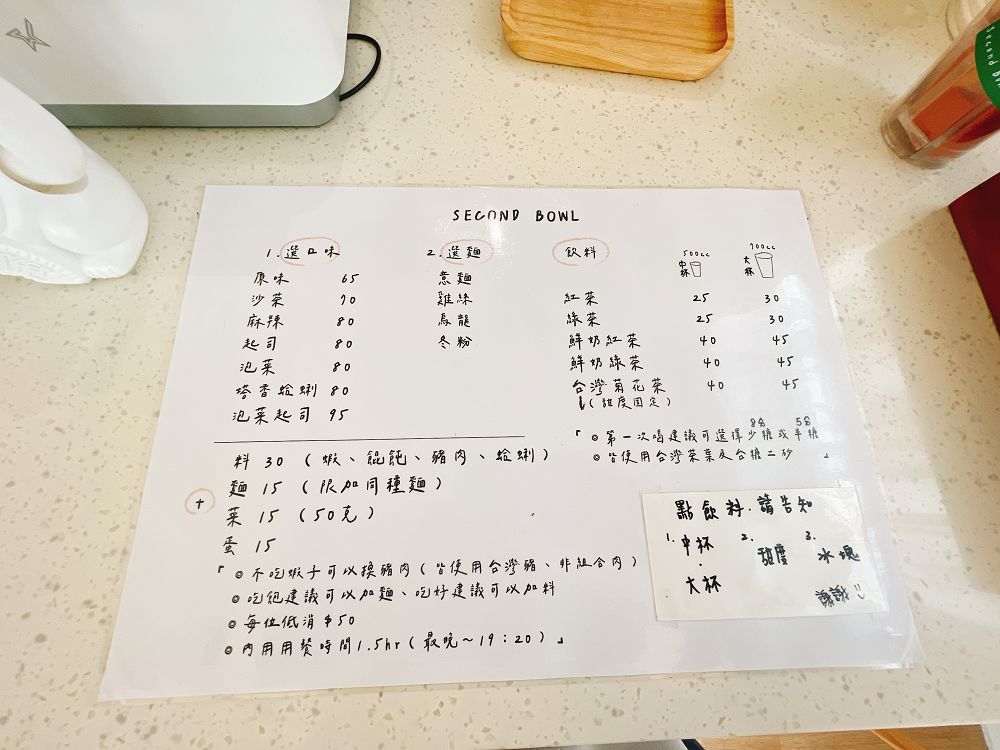 SECOND BOWL
1. 選口味
原味 65
沙茶 70
麻辣 80
起司 80
泡菜 80
塔香蛤蜊 80
泡菜起司 95
2. 選麵
意麵
雞絲
烏龍
冬粉
飲料
500cc 中杯
700cc 大杯
紅茶 25 30
綠茶 25 30
鮮奶紅茶 40 45
鮮奶綠茶 40 45
台灣菊花茶 40 45
(甜度固定)
8分 5分
「◎第一次喝建議可選擇少糖或半糖
◎皆使用台灣茶葉及台糖二砂 」
+
料 30 (蝦、餛飩、豬肉、蛤蜊)
麵 15 (限加同種麵)
菜 15 (50克)
蛋 15
「◎不吃蝦子可以換豬肉(皆使用台灣豬、非組合肉)
◎吃飽建議可以加麵、吃好建議可以加料
◎每位低消$50
◎內用用餐時間1.5hr(最晚~19:20)」
點飲料.請告知
1. 中杯 2. 甜度 3. 冰塊
大杯
Second